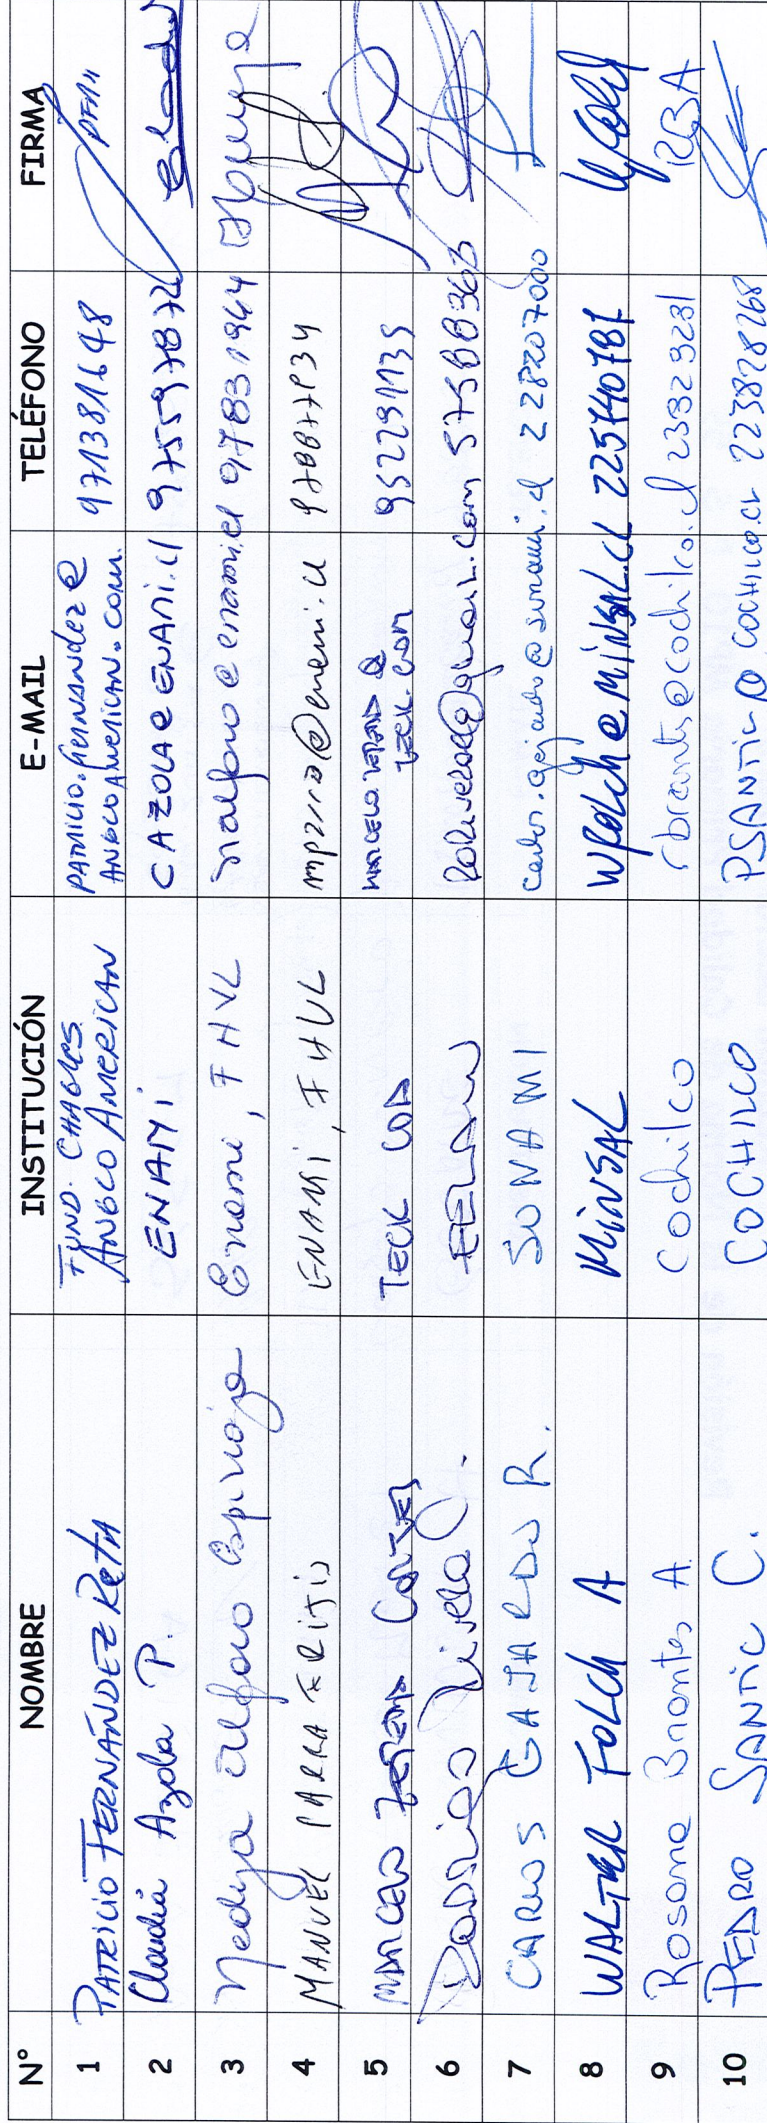 N° NOMBRE INSTITUCIÓN E-MAIL TELÉFONO FIRMA
1 PATRICIO FERNÁNDEZ Reta FUND. CHAGRES ANGLO AMERICAN PATRICIO.fernandez@ ANGLOAMERICAN.COM. 971381648 PFM
2 Claudia Azola P. ENAMI CAZOLA@ENAMI.cl 975597872
3 Nedya Alfaro Espinoza Enami, FHVL nalfaro@enami.cl 97831964
4 MANUEL PARRA ENAMI, FHVL mparra@enami.cl
5 MARCELO TECK CDA TECK.COM 952291135
6 Rodrigo Rivera
7 CARLOS GAJARDO R. SONAMI carlos.gajardo@sonami.cl 228207000
8 WALTER FOLCH A MINSAL wfolch@MINSAL.CL 225740787
9 Rosana Brantes A. Cochilco rbrantes@cochilco.cl 23823231 RBA
10 PEDRO SANTIC C. COCHILCO PSANTIC@COCHILCO.CL 223828268